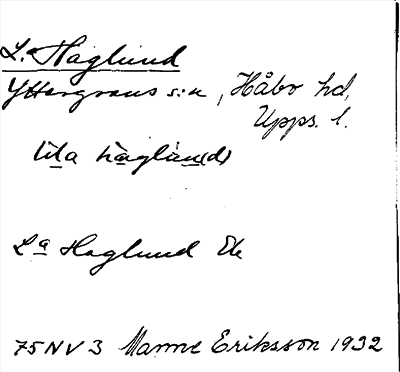 L:a Haglund
Yttergrans s:n, Håbo hd,
Upps. l.
lila haglun(d)
La Haglund Ek
75NV3 Manne Eriksson 1932